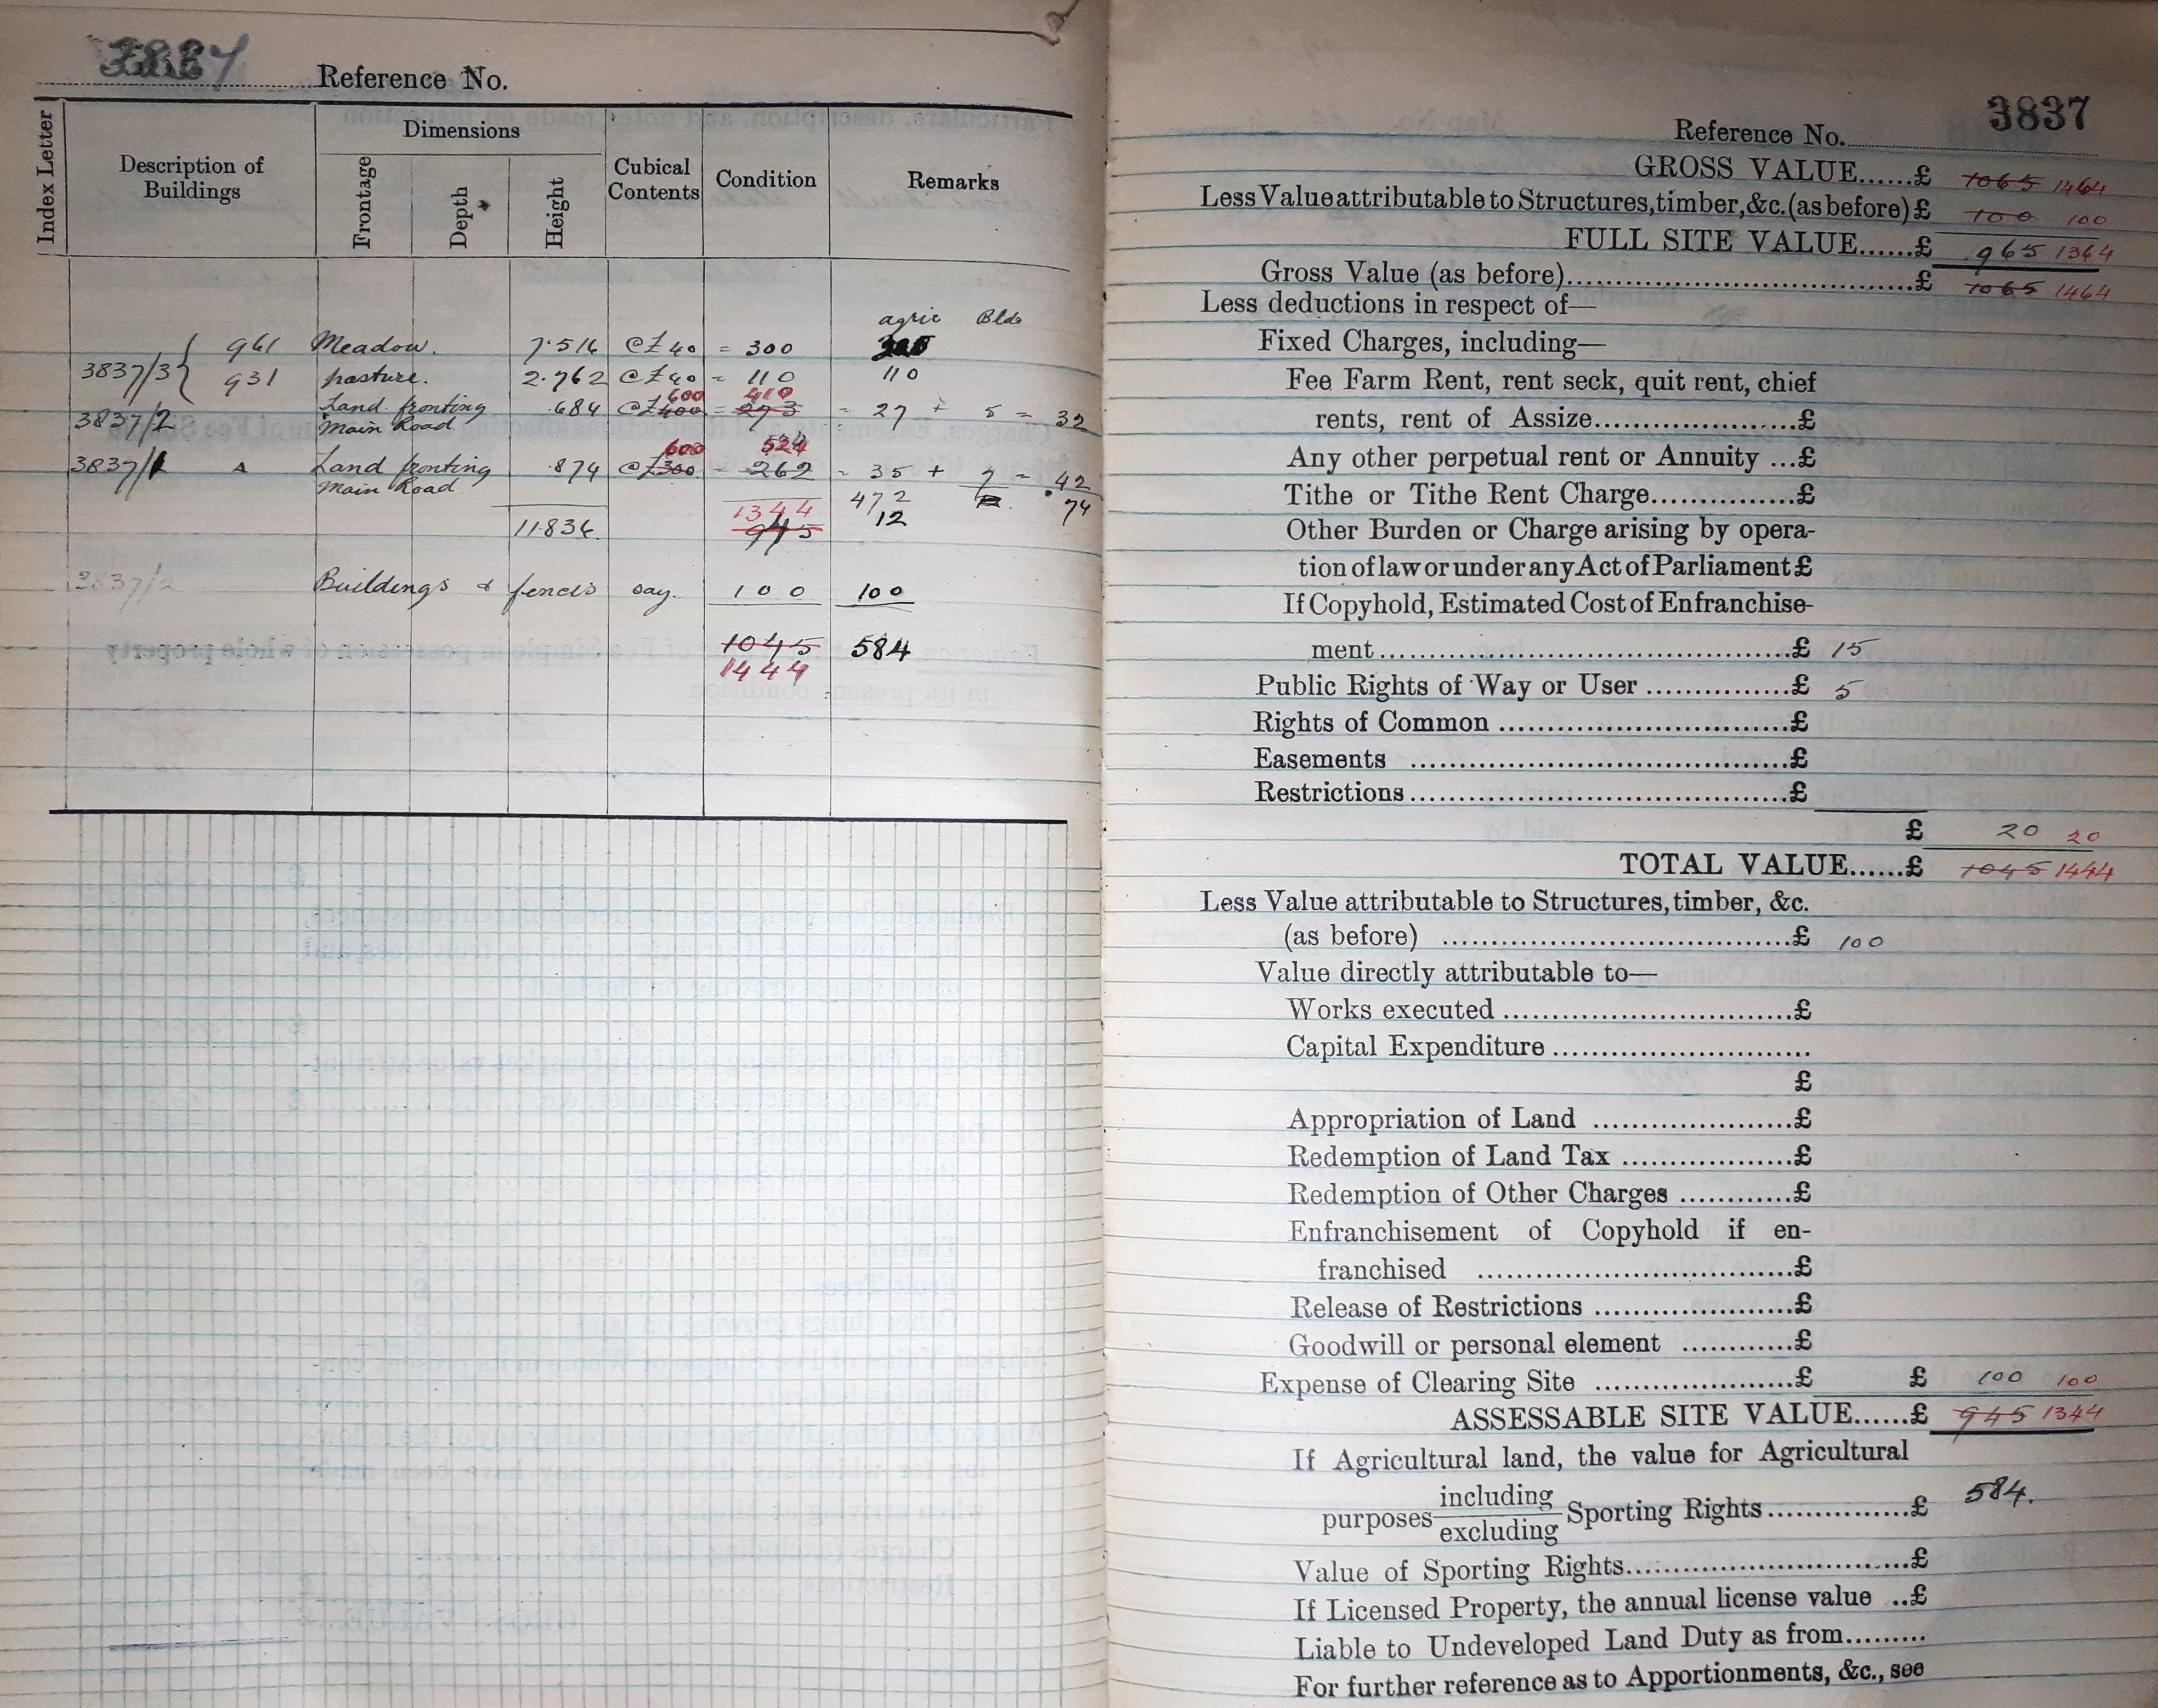 Reference No.
Index Letter
Description of Buildings
Dimensions
Frontage
Depth
Height
Cubical Contents
Condition
Remarks
agric Bldg
3837/3 { 961 Meadow. 7.516 @£40 = 300
931 pasture. 2.762 @£40 = 110 110
600 410
3837/2 Land fronting .684 @£400 = 273 = 27 + 5 = 32
Main Road
600 524
3837/1 A Land fronting .874 @£300 = 262 = 35 + 7 = 42
Main Road 472 74
1344 12
11.836. 945
3837/2 Buildings & fences say. 100 100
1045 584
1444
3837
Reference No.
GROSS VALUE......£ 1065 1464
Less Value attributable to Structures, timber, &c. (as before) £ 100 100
FULL SITE VALUE......£ 965 1364
Gross Value (as before)......£ 1065 1464
Less deductions in respect of—
Fixed Charges, including—
Fee Farm Rent, rent seck, quit rent, chief
rents, rent of Assize......£
Any other perpetual rent or Annuity ...£
Tithe or Tithe Rent Charge......£
Other Burden or Charge arising by opera-
tion of law or under any Act of Parliament £
If Copyhold, Estimated Cost of Enfranchise-
ment......£ 15
Public Rights of Way or User......£ 5
Rights of Common......£
Easements......£
Restrictions......£
£ 20 20
TOTAL VALUE......£ 1045 1444
Less Value attributable to Structures, timber, &c.
(as before)......£ 100
Value directly attributable to—
Works executed......£
Capital Expenditure......
£
Appropriation of Land......£
Redemption of Land Tax......£
Redemption of Other Charges......£
Enfranchisement of Copyhold if en-
franchised......£
Release of Restrictions......£
Goodwill or personal element......£
Expense of Clearing Site......£ £ 100 100
ASSESSABLE SITE VALUE......£ 945 1344
If Agricultural land, the value for Agricultural
purposes including / excluding Sporting Rights......£ 584.
Value of Sporting Rights......£
If Licensed Property, the annual license value ..£
Liable to Undeveloped Land Duty as from.........
For further reference as to Apportionments, &c., see